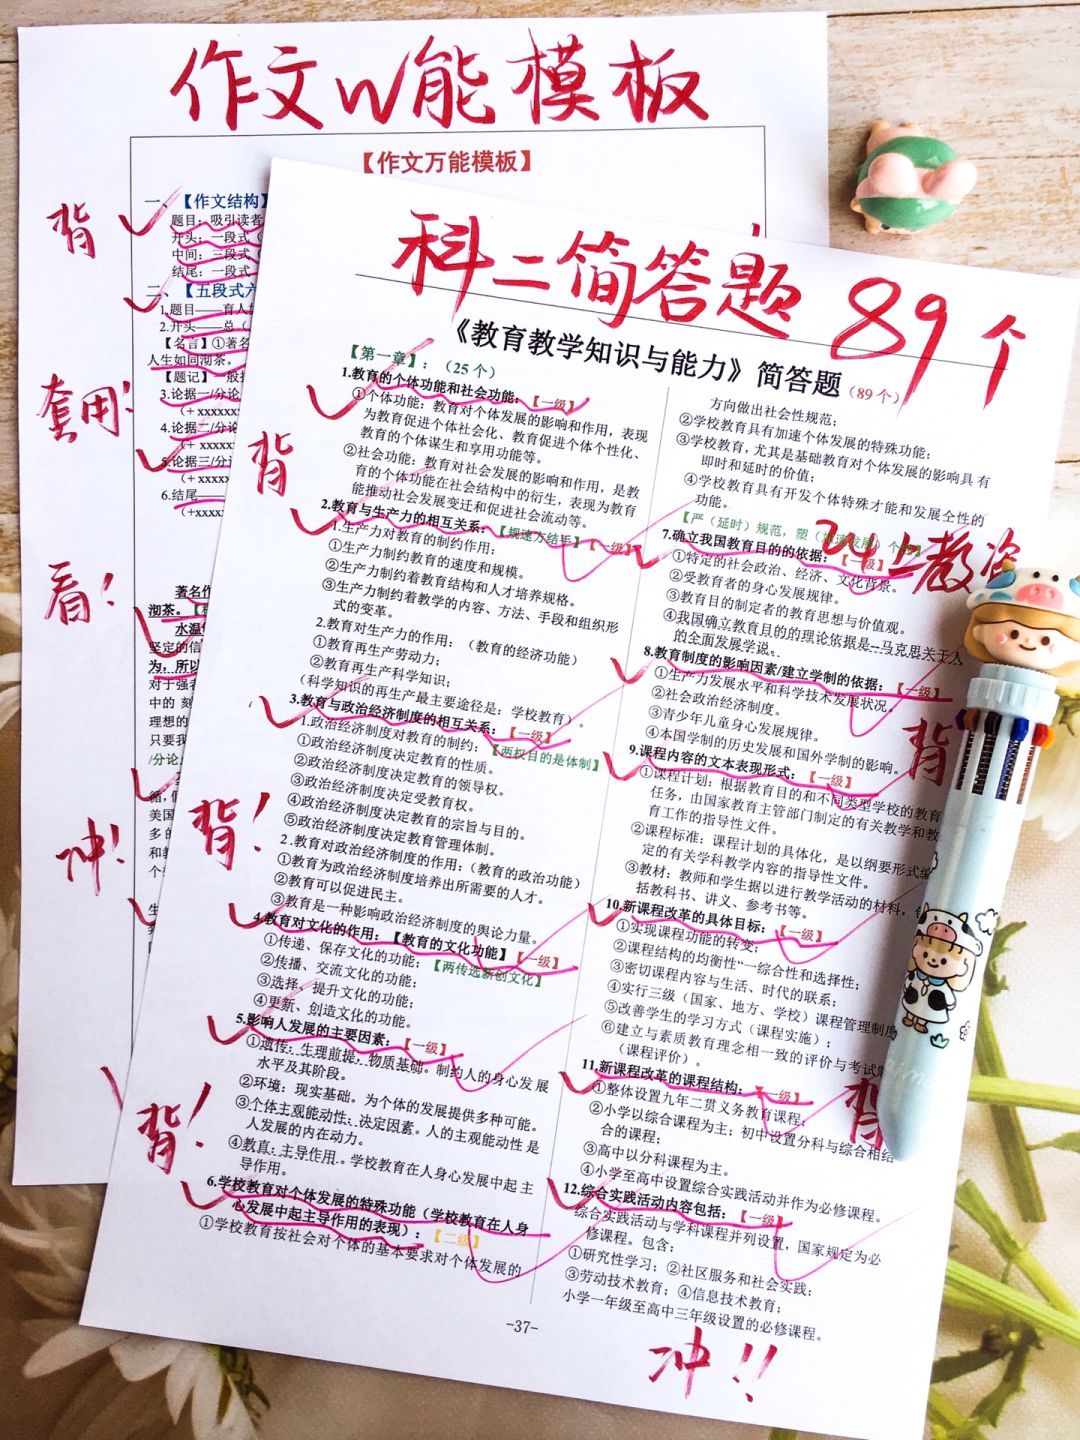 作文W能模板
【作文万能模板】
一、【作文结构】
题目：吸引读者
开头：一段式（
中间：三段式（
结尾：一段式
二、【五段式六
1.题目——育人
2.开头——总（
【名言】①著名
人生如同沏茶。
【题记】一般
3.论据一/分论
（+ xxxxxxx
4.论据二/分论
（+ xxxxx
5.论据三/分论
（+ xxxxx
6.结尾——
（+xxxx
著名作
沏茶。
水温
坚定的信
为，所以
对于强者
中的 刻
理想的
只要我
/分论
循，但
美国
多的
和教
个
生
背
套用！
看！
冲！
科二简答题 89个
《教育教学知识与能力》简答题（89个）
【第一章】：（25个）
1.教育的个体功能和社会功能：【一级】
①个体功能：教育对个体发展的影响和作用，表现
为教育促进个体社会化、教育促进个体个性化、
教育的个体谋生和享用功能等。
②社会功能：教育对社会发展的影响和作用，是教
育的个体功能在社会结构中的衍生，表现为教育
能推动社会发展变迁和促进社会流动等。
2.教育与生产力的相互关系：【规速方结手】【一级】
1.生产力对教育的制约作用：
①生产力制约教育的速度和规模。
②生产力制约着教育结构和人才培养规格。
③生产力制约着教学的内容、方法、手段和组织形
式的变革。
2.教育对生产力的作用：（教育的经济功能）
①教育再生产劳动力；
②教育再生产科学知识；
（科学知识的再生产最主要途径是：学校教育）。
3.教育与政治经济制度的相互关系：【一级】
1.政治经济制度对教育的制约：【两权目的是体制】
①政治经济制度决定教育的性质。
②政治经济制度决定教育的领导权。
③政治经济制度决定受教育权。
④政治经济制度决定教育的宗旨与目的。
⑤政治经济制度决定教育管理体制。
2.教育对政治经济制度的作用：（教育的政治功能）
①教育为政治经济制度培养出所需要的人才。
②教育可以促进民主。
③教育是一种影响政治经济制度的舆论力量。
4.教育对文化的作用：【教育的文化功能】【一级】
①传递、保存文化的功能；【两传选新创文化】
②传播、交流文化的功能；
③选择、提升文化的功能；
④更新、创造文化的功能。
5.影响人发展的主要因素：【一级】
①遗传：生理前提、物质基础。制约人的身心发展
水平及其阶段。
②环境：现实基础。为个体的发展提供多种可能。
③个体主观能动性：决定因素。人的主观能动性是
人发展的内在动力。
④教育：主导作用。学校教育在人身心发展中起主
导作用。
6.学校教育对个体发展的特殊功能（学校教育在人身
心发展中起主导作用的表现）：【二级】
①学校教育按社会对个体的基本要求对个体发展的
背
背！
背！
方向做出社会性规范；
②学校教育具有加速个体发展的特殊功能；
③学校教育，尤其是基础教育对个体发展的影响具有
即时和延时的价值；
④学校教育具有开发个体特殊才能和发展个性的
功能。
7.确立我国教育目的的依据：【一级】
①特定的社会政治、经济、文化背景。
②受教育者的身心发展规律。
③教育目的制定者的教育思想与价值观。
④我国确立教育目的的理论依据是--马克思关于人
的全面发展学说。
8.教育制度的影响因素/建立学制的依据：【一级】
①生产力发展水平和科学技术发展状况。
②社会政治经济制度。
③青少年儿童身心发展规律。
④本国学制的历史发展和国外学制的影响。
9.课程内容的文本表现形式：【一级】
①课程计划：根据教育目的和不同类型学校的教育
任务，由国家教育主管部门制定的有关教学和教
育工作的指导性文件。
②课程标准：课程计划的具体化，是以纲要形式编
定的有关学科教学内容的指导性文件。
③教材：教师和学生据以进行教学活动的材料，
括教科书、讲义、参考书等。
10.新课程改革的具体目标：【一级】
①实现课程功能的转变；
②课程结构的均衡性一综合性和选择性；
③密切课程内容与生活、时代的联系；
④实行三级（国家、地方、学校）课程管理制度
⑤改善学生的学习方式（课程实施）；
⑥建立与素质教育理念相一致的评价与考试
（课程评价）。
11.新课程改革的课程结构：【一级】
①整体设置九年一贯义务教育课程；
②小学以综合课程为主；初中设置分科与综合相结
合的课程；
③高中以分科课程为主。
④小学至高中设置综合实践活动并作为必修课程。
12.综合实践活动内容包括：【一级】
综合实践活动与学科课程并列设置，国家规定为必
修课程。包含：
①研究性学习；②社区服务和社会实践；
③劳动技术教育；④信息技术教育；
小学一年级至高中三年级设置的必修课程。
24上教资
背
背
-37-
冲！！